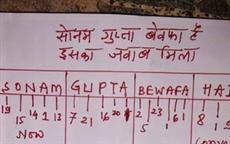 सोनम गुप्ता बेवफा है
इसका जवाब मिला
SONAM GUPTA BEWAFA HAI
19 15 14 1 13 7 21 16 20 1 2 5 23 1 6 1 8 1
NOW